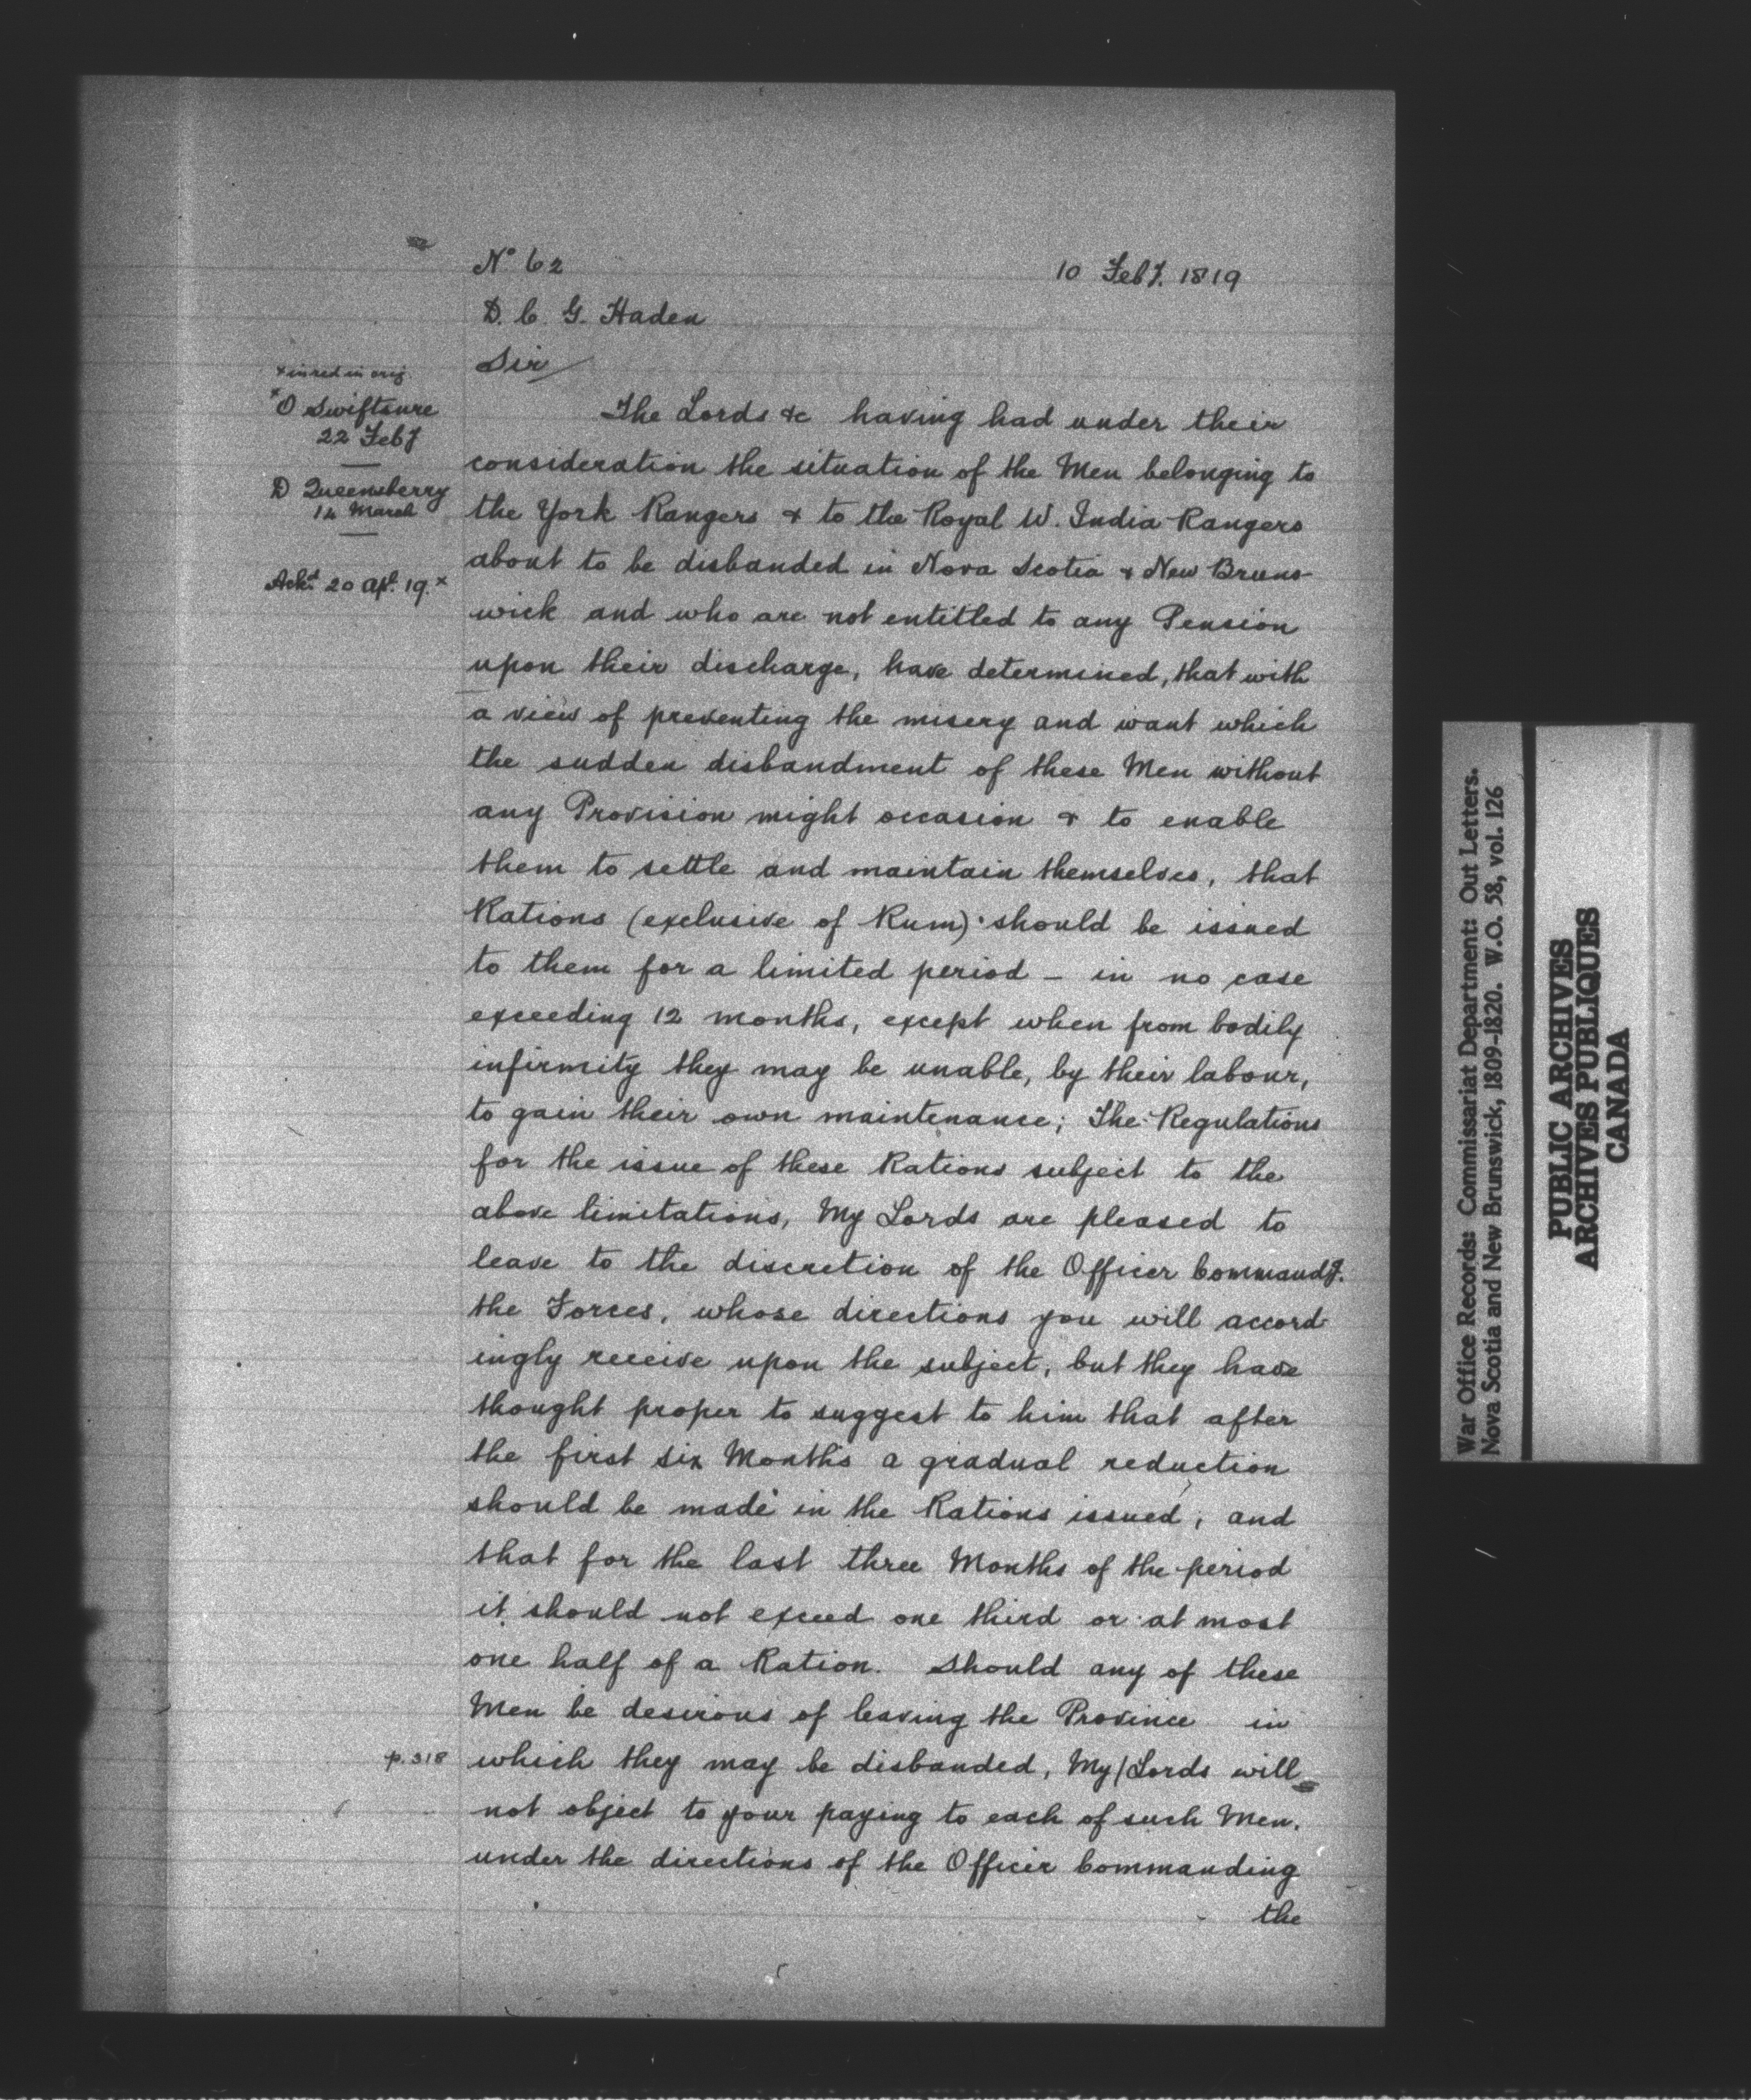 No 62
10 Feby. 1819
D. C. G. Haden
Sir
x in red in orig.
x O Swiftsure
22 Feby
D Queensberry
14 March
Ackd 20 Apl. 19. x
The Lords &c having had under their
consideration the situation of the Men belonging to
the York Rangers & to the Royal W. India Rangers
about to be disbanded in Nova Scotia & New Bruns-
wick and who are not entitled to any Pension
upon their discharge, have determined, that with
a view of preventing the misery and want which
the sudden disbandment of these Men without
any Provision might occasion & to enable
them to settle and maintain themselves, that
Rations (exclusive of Rum) should be issued
to them for a limited period – in no case
exceeding 12 months, except when from bodily
infirmity they may be unable, by their labour,
to gain their own maintenance; The Regulations
for the issue of these Rations subject to the
above limitations, My Lords are pleased to
leave to the discretion of the Officer Commandg.
the Forces, whose directions you will accord-
ingly receive upon the subject, but they have
thought proper to suggest to him that after
the first six Months a gradual reduction
should be made in the Rations issued, and
that for the last three Months of the period
it should not exceed one third or at most
one half of a Ration. Should any of these
Men be desirous of leaving the Province in
p. 318
which they may be disbanded, My/Lords will
not object to your paying to each of such Men,
under the directions of the Officer Commanding
the
War Office Records: Commissariat Department: Out Letters.
Nova Scotia and New Brunswick, 1809-1820. W.O. 58, vol. 126
PUBLIC ARCHIVES
ARCHIVES PUBLIQUES
CANADA